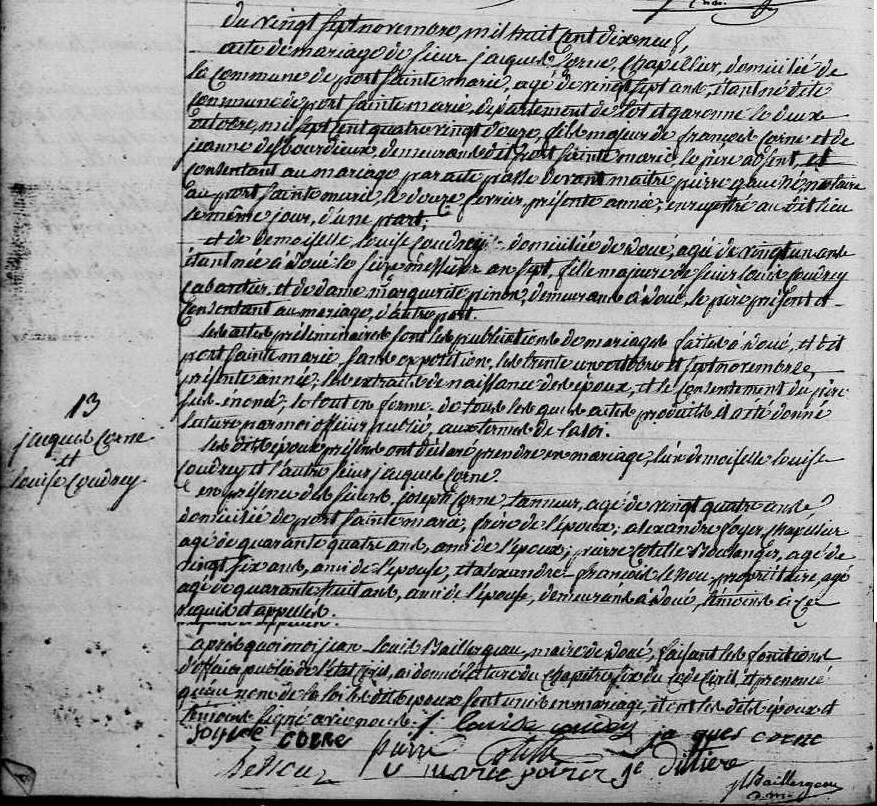 du vingt sept novembre, mil huit cent dix neuf,
acte de mariage de sieur jacques Corne, Chapellier, domicilié de
la Commune de port Sainte marie, agé de vingt sept ans, étant né dite
commune de port Sainte marie, département de lot et garonne le deux
octobre, mil sept cent quatre vingt douze, fils majeur de françois Corne et de
jeanne desbourdieux, demeurans dit port Sainte marie, le père absent, et
consentant au mariage par acte passé devant maître pierre notaire
au port Sainte marie, le douze fevrier, présente année, enregistré au dit lieu
le même jour, d'une part;
et de demoiselle Louise Coudrey, domiciliée de Doué, agée de vingt un ans
étant née à Doué le messidor an sept, fille majeure de sieur Louis Coudrey
Cabaretier, et de dame marguerite pinon, demeurans à Doué, le père présent et
Consentant au mariage, d'autre part.
les actes préliminaires sont les publications de mariages faites à Doué, et dit
port Sainte marie, sans opposition, les trente un octobre et sept novembre,
présente année; les extraits de naissance des époux, et le Consentement du père
sus énoncé, le tout en forme. de tous les quels actes produits il a été donné
lecture par moi officier public, aux termes de la loi.
les dits époux présens ont déclaré prendre en mariage, l'un demoiselle Louise
Coudrey et l'autre sieur jacques Corne.
en présence des sieurs joseph Corne, tanneur, agé de vingt quatre ans
domicilié de port Sainte marie, frère de l'époux; alexandre foyer Chapellier
agé de quarante quatre ans, ami de l'époux; pierre Cotille Boulanger, agé de
vingt six ans, ami de l'épouse, et alexandre françois propriétaire, agé
agé de quarante huit ans, ami de l'épouse, demeurans à Doué, témoins à ce
requis et appellés.
après quoi moi jean Louis Baillergeau, maire de Doué, faisant les fonctions
d'officier public de l'état Civil, ai donné lecture du chapitre six du Code Civil, et prononcé
qu'au nom de la loi les dits époux sont unis en mariage, et ont les dits époux et
témoins signé avec nous.
13
jacques Corne
et
Louise Coudrey.
Louise coudrey jaques corne
josepe corne pierre Cotille
marie poirier
JL Baillergeau